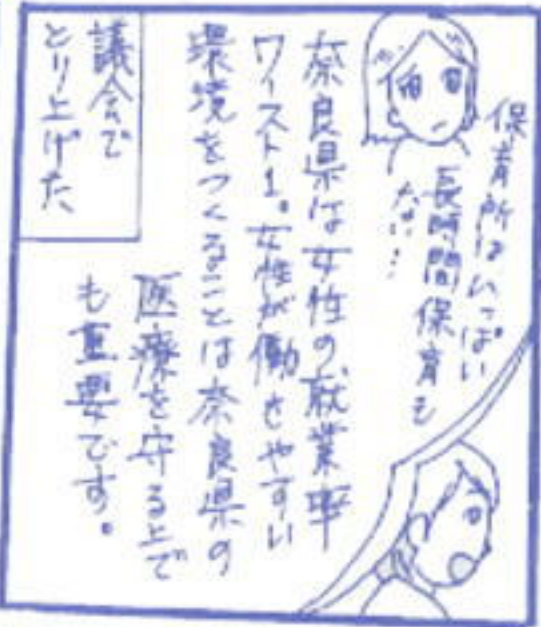 保育所はいっぱい
長時間保育も
ない…
奈良県は女性の就業率
ワースト1。女性が働きやすい
環境をつくることは奈良県の
医療を守る上で
も重要です。
議会で
とり上げた